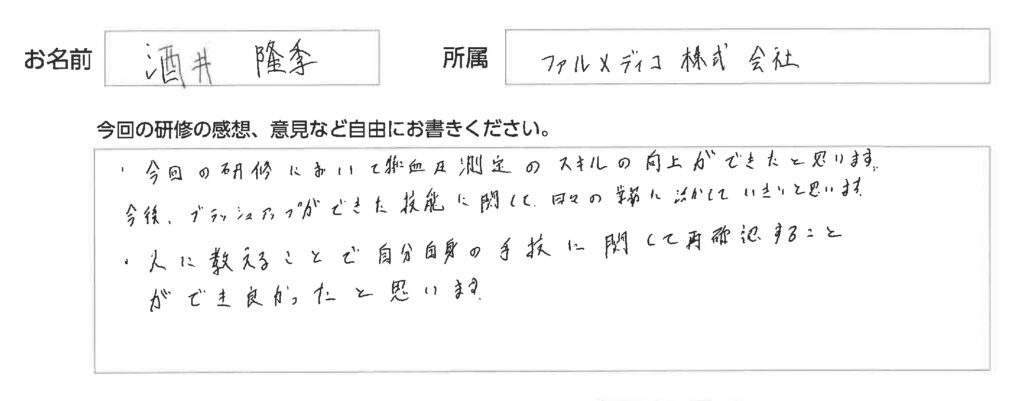 お名前 酒井 隆季 所属 ファルメディコ株式会社
今回の研修の感想、意見など自由にお書きください。
・今回の研修において採血及測定のスキルの向上ができたと思います。
今後、ブラッシュアップができた技能に関して、日々の業務に活かしていきたいと思います。
・人に教えることで自分自身の手技に関して再確認すること
ができ良かったと思います。